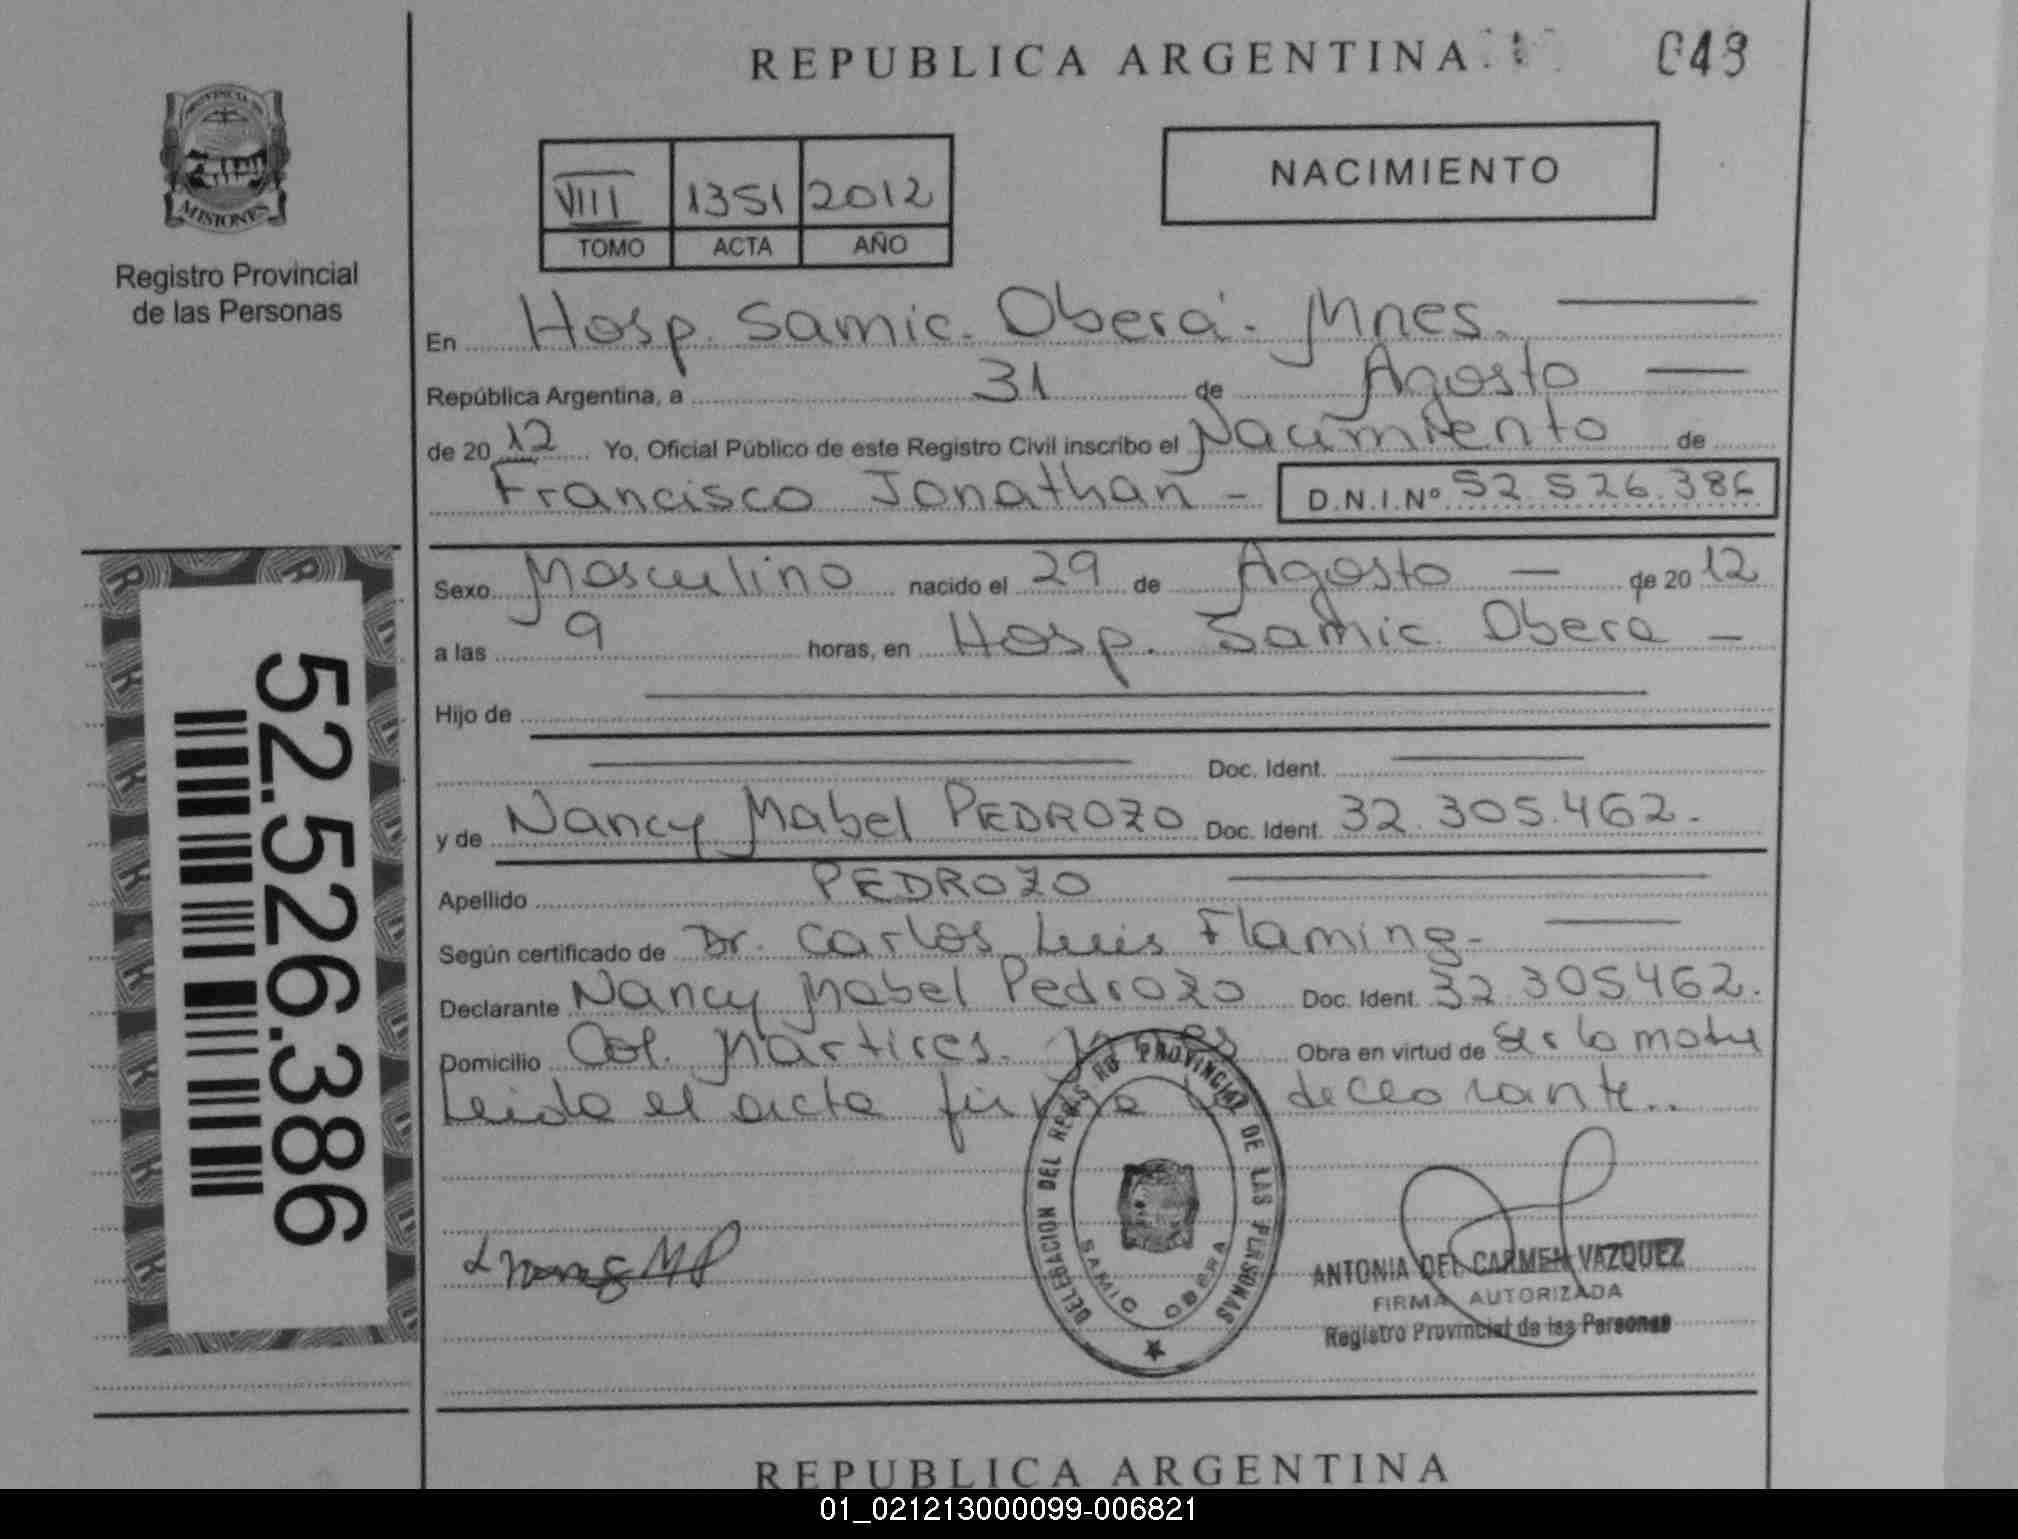 REPUBLICA ARGENTINA
049
PROVINCIA DE
MISIONES
Registro Provincial
de las Personas
VIII 1351 2012
TOMO ACTA AÑO
NACIMIENTO
En Hosp. Samic. Oberá. Mnes.
República Argentina, a 31 de Agosto
de 2012 Yo, Oficial Público de este Registro Civil inscribo el Nacimiento de
Francisco Jonathan - D.N.I.Nº 52.526.386
Sexo Masculino nacido el 29 de Agosto - de 2012
a las 9 horas, en Hosp. Samic. Obera -
Hijo de
Doc. Ident.
y de Nancy Mabel PEDROZO Doc. Ident. 32.305.462.
Apellido PEDROZO
Según certificado de Dr. Carlos Luis Flaming-
Declarante Nancy Mabel Pedrozo Doc. Ident. 32 305462.
Domicilio Col. Martires. Mnes Obra en virtud de ser la madre
Leida el acta firma la declarante..
52.526.386
DELEGACION DEL REGISTRO PROVINCIAL DE LAS PERSONAS
SAMIC OBERA
ANTONIA DEL CARMEN VAZQUEZ
FIRMA AUTORIZADA
Registro Provincial de las Personas
REPUBLICA ARGENTINA
01_021213000099-006821